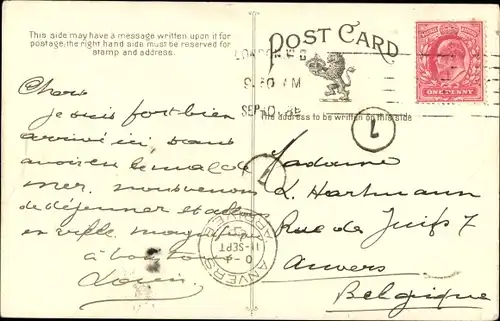 This side may have a message written upon it for
postage, the right hand side must be reserved for
stamp and address.
POST CARD
The address to be written on this side
LONDON, W.C
9.30 AM
SEP 10
ONE PENNY
1
1
Chers
Je suis fort bien
arrivé ici, sans
avoir eu le mal de
mer. nous venons
de déjeuner et allons
en ville.
à tous
Louis
ANVERS
11-SEPT
Madame
L. Hartmann
Rue de Juifs 7
Anvers
Belgique